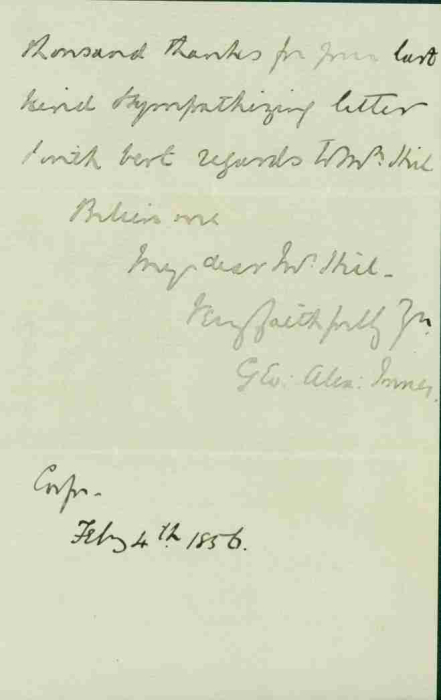 thousand thanks for your last
kind Sympathizing letter
& with best regards to Mrs.
Believe me
My dear Mr.
Very faithfully Yrs.
Geo: Alex:
Feby 4th 1856.